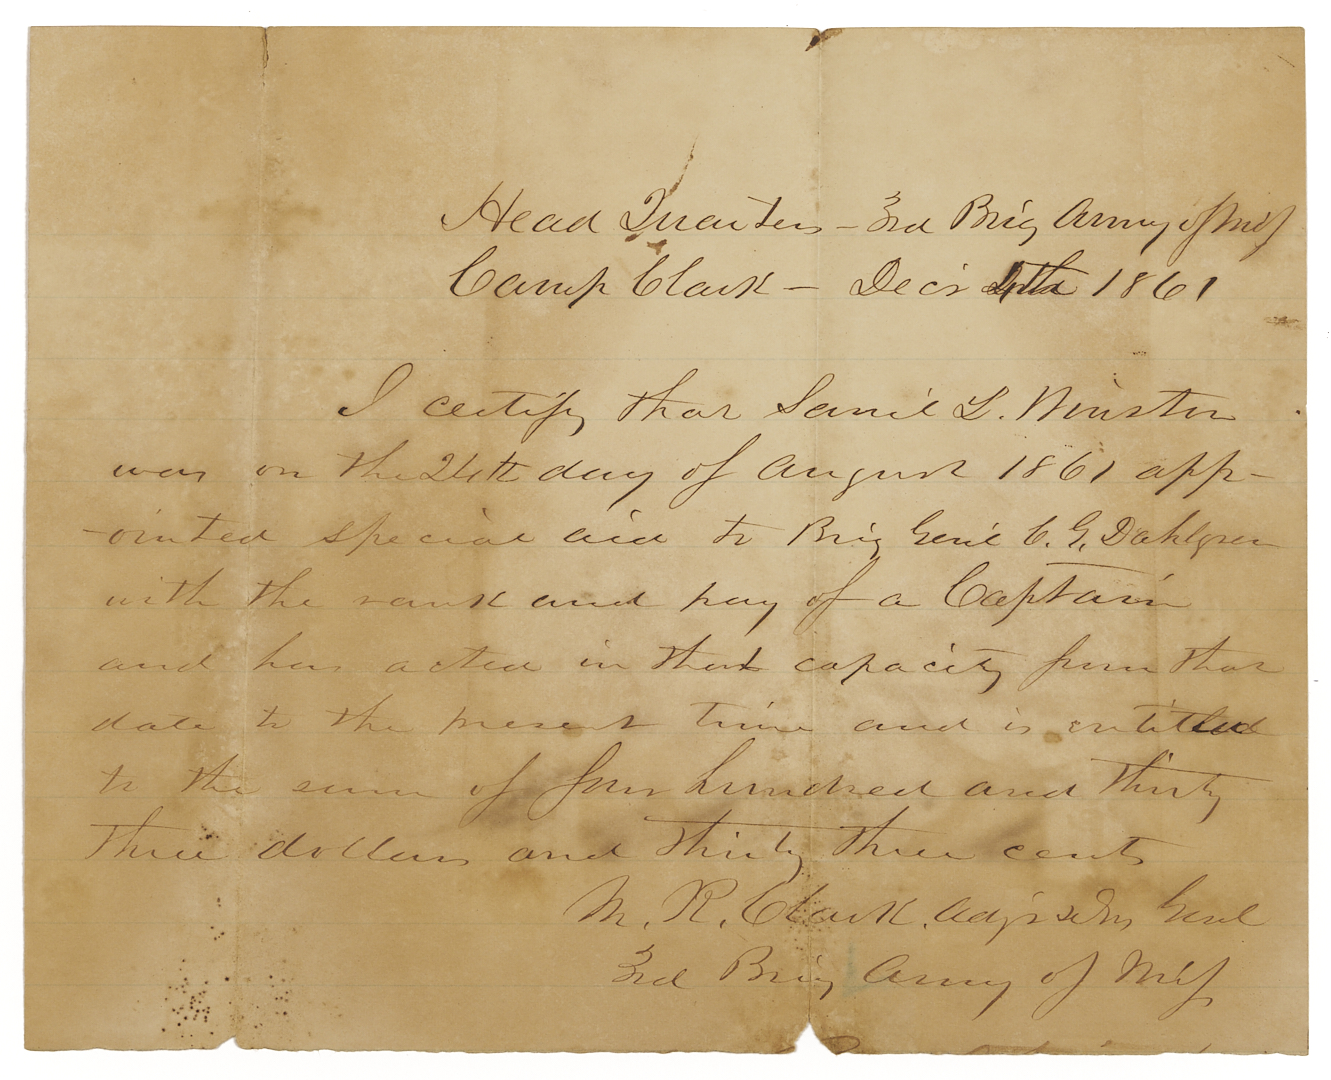 Head Quarters - 3rd Brig Army of Miss
Camp Clark - Decr 4th 1861
I certify that Saml L. Winston
was on the 24th day of August 1861 app-
-ointed special aid to Brig Genl C. G. Dahlgren
with the rank and pay of a Captain
and has acted in that capacity from that
date to the present time and is entitled
to the sum of four hundred and thirty
three dollars and thirty three cents
M. R. Clark. Adjt & Ins Genl
3rd Brig Army of Miss